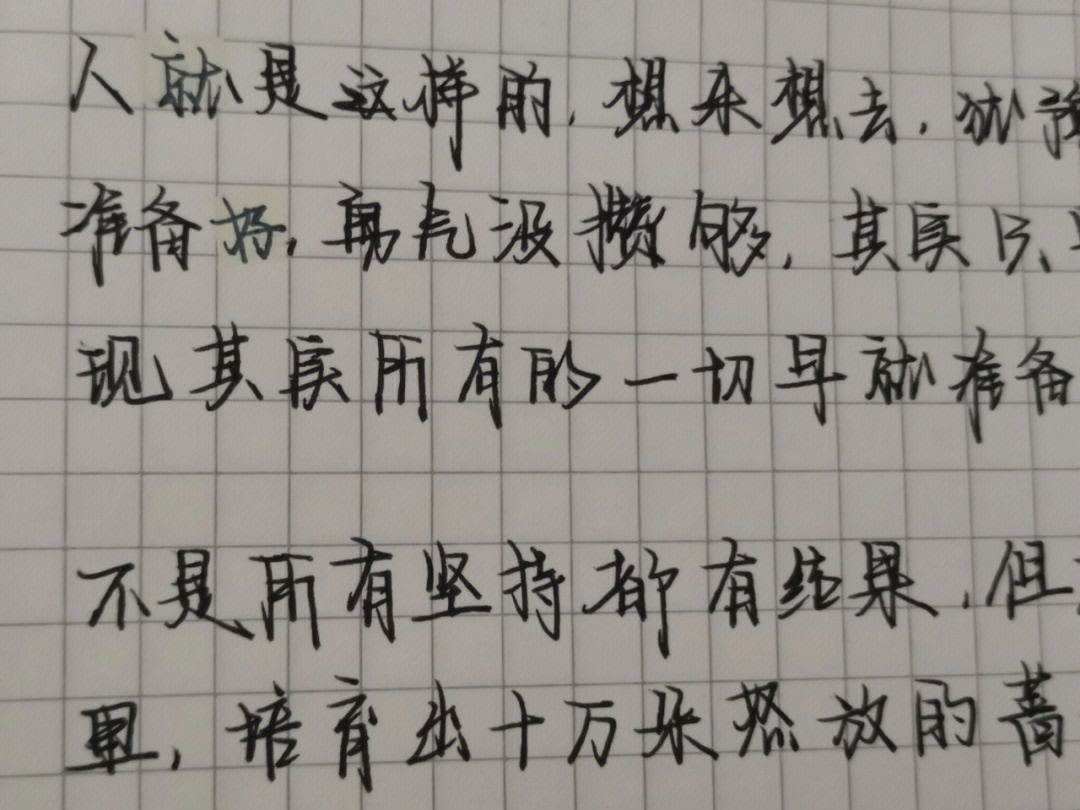 人就是这样的,想来想去,犹豫
准备好,勇气没攒够,其实只
现其实所有的一切早就准备
不是所有坚持都有结果,但
里,培育出十万朵怒放的蔷